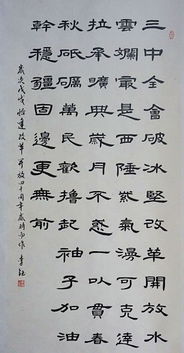 三中全會破冰堅改革開放水
雲斕最是西陲紫氣可克達
拉承曠典歲月不一以貫春
秋砥礪萬民歡擼起袖子加油
幹穩疆固邊更無前
歲次戊戌恰逢改革開放四十周年感時而作 李